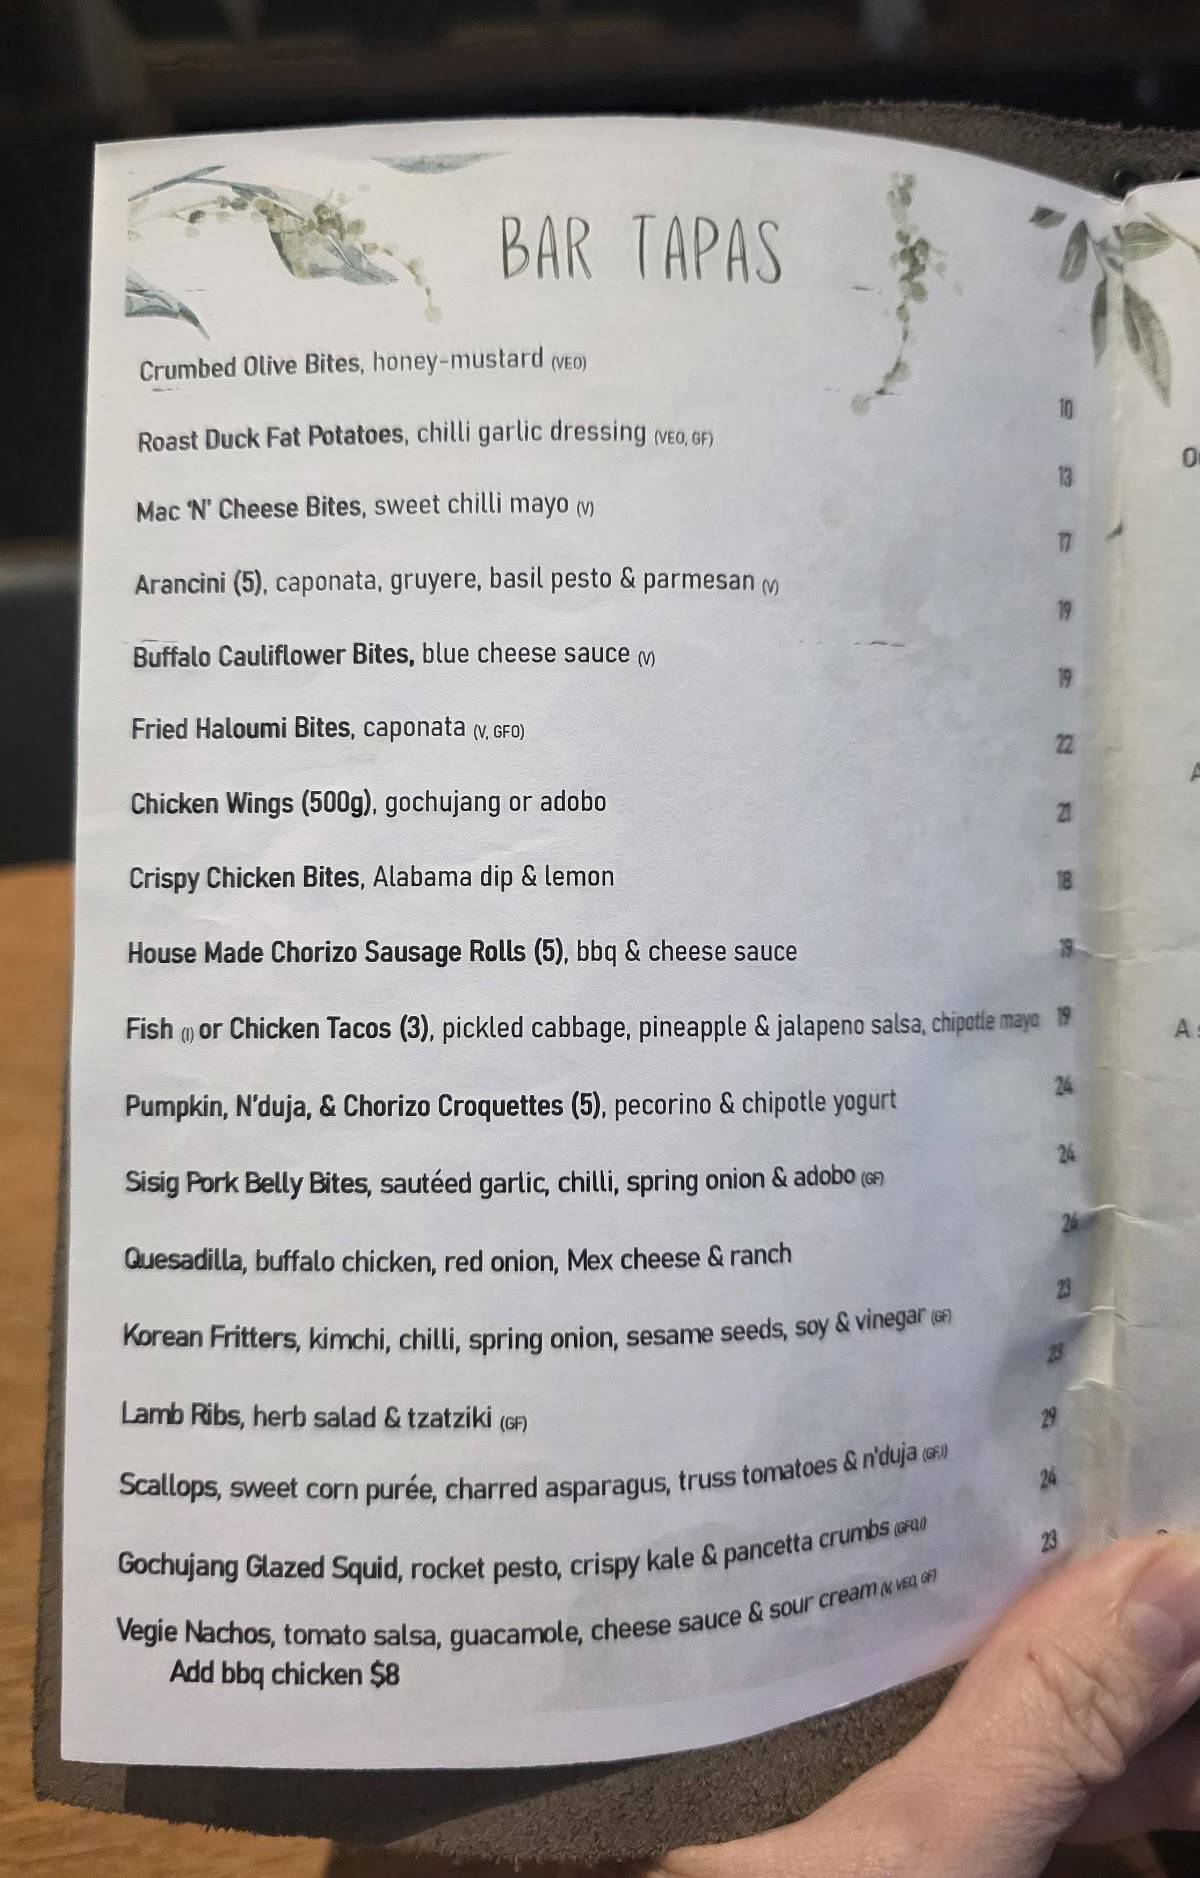 BAR TAPAS
Crumbed Olive Bites, honey-mustard (VEO) 10
Roast Duck Fat Potatoes, chilli garlic dressing (VEO, GF) 13
Mac 'N' Cheese Bites, sweet chilli mayo (V) 17
Arancini (5), caponata, gruyere, basil pesto & parmesan (V) 19
Buffalo Cauliflower Bites, blue cheese sauce (V) 19
Fried Haloumi Bites, caponata (V, GFO) 22
Chicken Wings (500g), gochujang or adobo 21
Crispy Chicken Bites, Alabama dip & lemon 18
House Made Chorizo Sausage Rolls (5), bbq & cheese sauce 19
Fish (I) or Chicken Tacos (3), pickled cabbage, pineapple & jalapeno salsa, chipotle mayo 19
Pumpkin, N'duja, & Chorizo Croquettes (5), pecorino & chipotle yogurt 24
Sisig Pork Belly Bites, sautéed garlic, chilli, spring onion & adobo (GF) 24
Quesadilla, buffalo chicken, red onion, Mex cheese & ranch 24
Korean Fritters, kimchi, chilli, spring onion, sesame seeds, soy & vinegar (GF) 23
Lamb Ribs, herb salad & tzatziki (GF) 23
Scallops, sweet corn purée, charred asparagus, truss tomatoes & n'duja (GF,I) 29
Gochujang Glazed Squid, rocket pesto, crispy kale & pancetta crumbs (GFO,I) 24
Vegie Nachos, tomato salsa, guacamole, cheese sauce & sour cream (V, VEO, GF) 23
Add bbq chicken $8